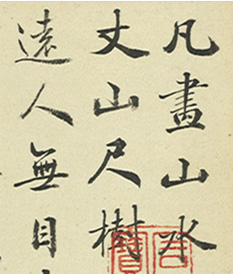 凡畫山水
丈山尺樹
遠人無目